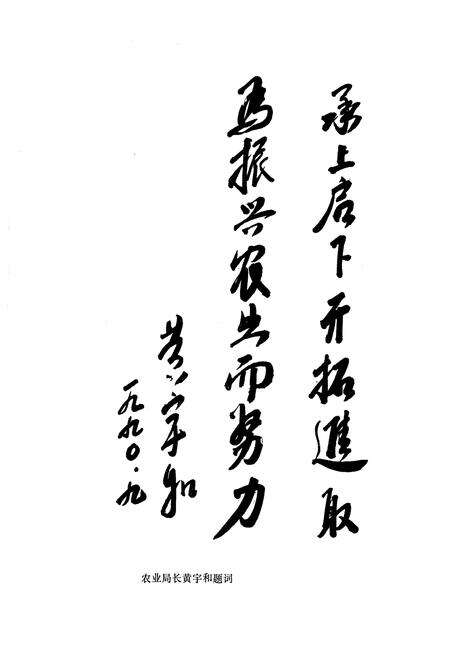 承上启下开拓進取
為振兴农业而努力
黄宇和
一九九〇·九
农业局长黄宇和题词